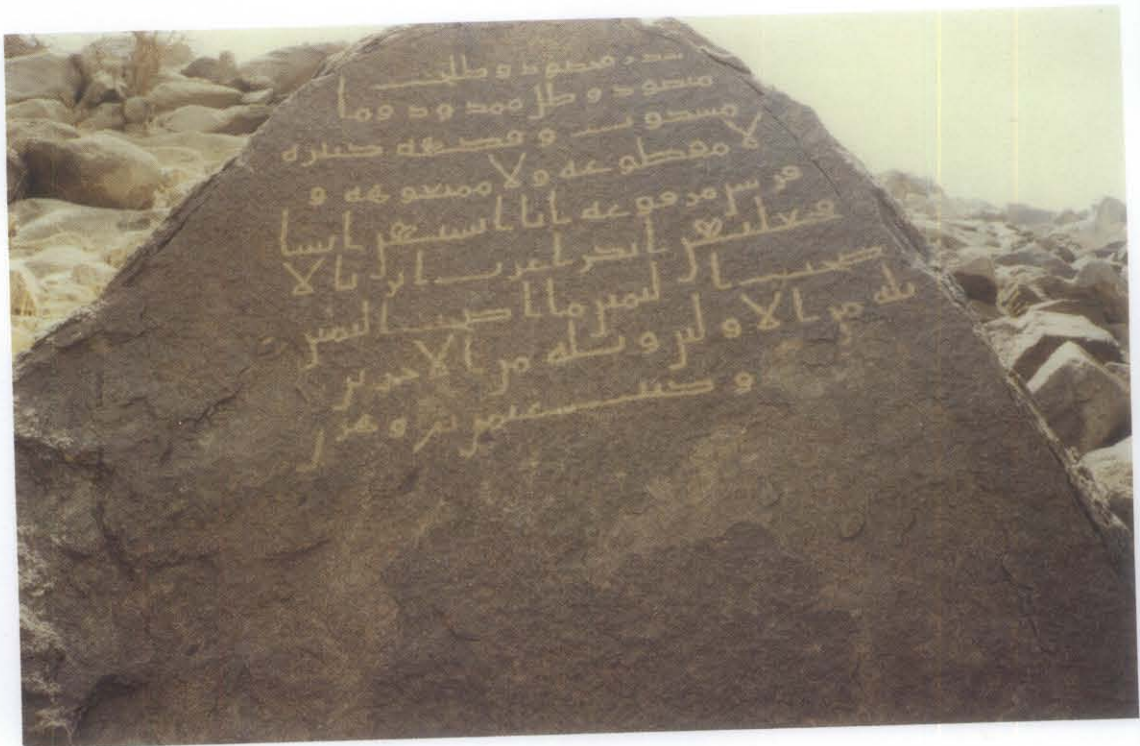 سدر مخضود وطلح
منضود وظل ممدود وما
مسكوب وفكهه كثيره
لا مقطوعه ولا ممنوعه و
فرش مرفوعه انا انشينهن انشا
فجعلنهن ابكرا عرب اتربا لا
صحب اليمين ما اصحب اليمين
ثله من الاولين وثله من الاخرين
وكتب